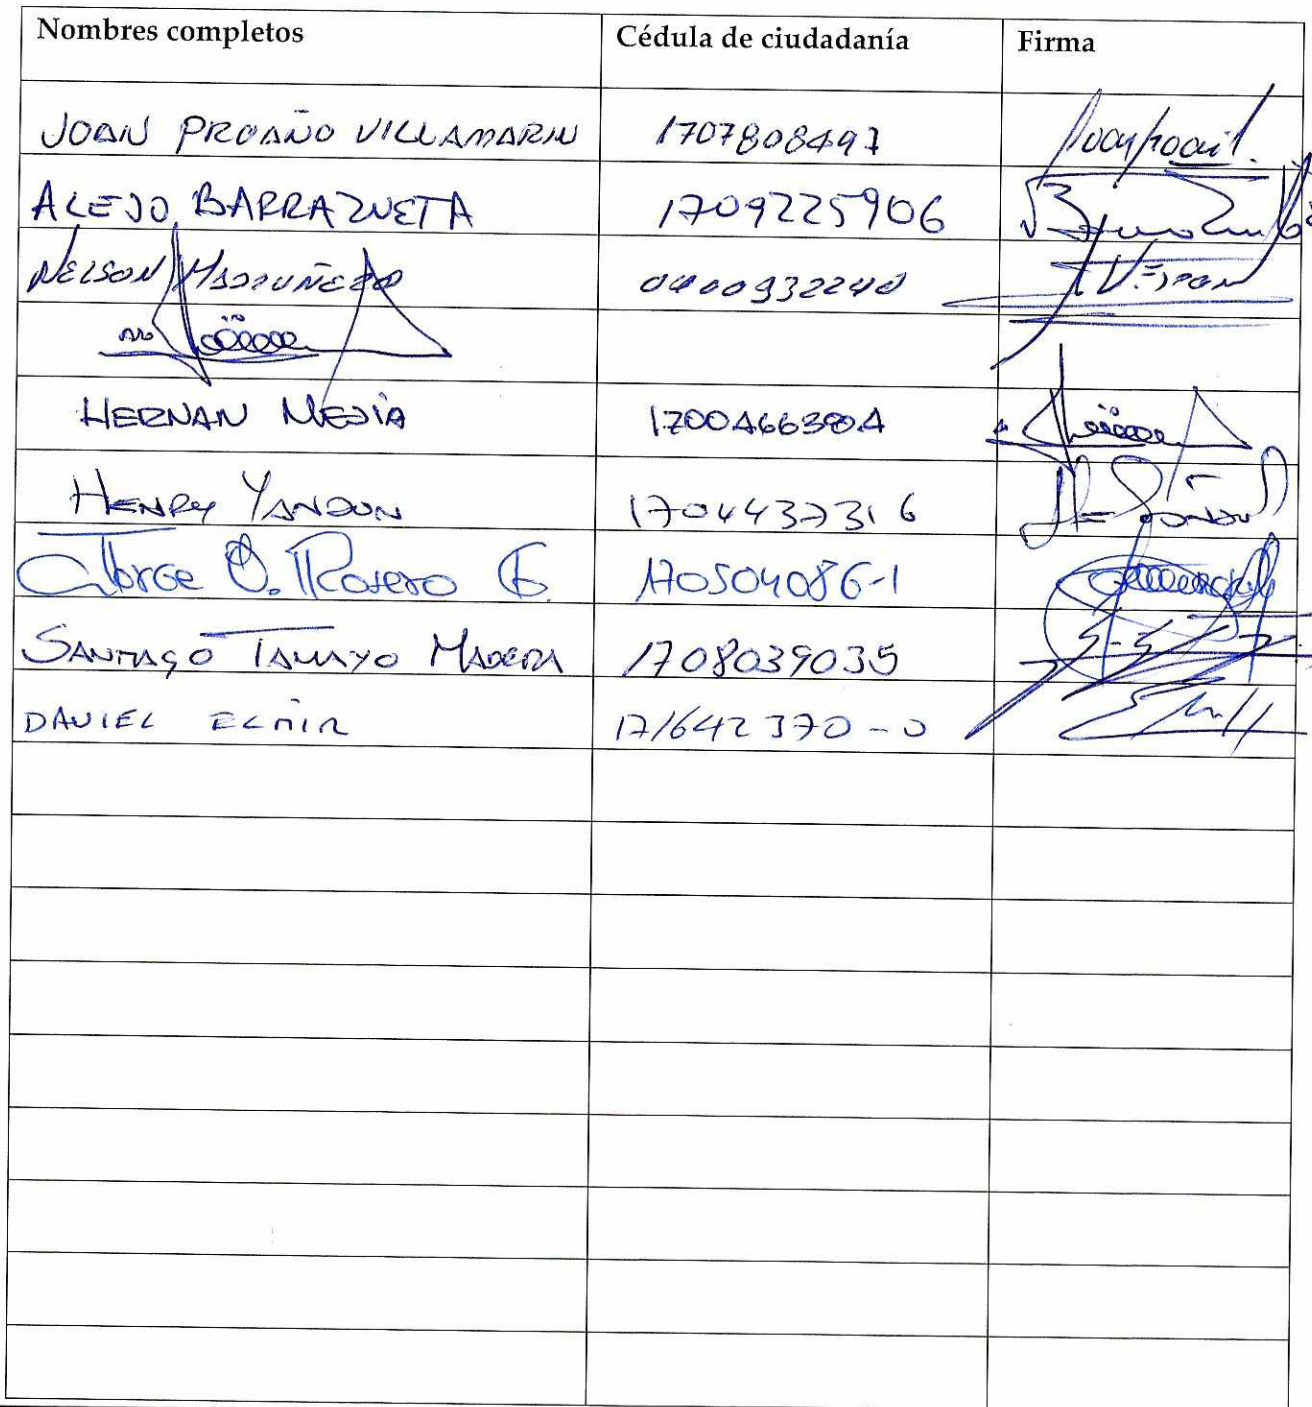 Nombres completos Cédula de ciudadanía Firma
JOAN PROAÑO VILLAMARIN 1707808497
ALEJO BARRAZUETA 1709225906
NELSON 0400932240
HERNAN MEJÍA 1700466384
HENRY YANDUN 1704437316
Jorge O. Rosero 170504086-1
SANTIAGO TAMAYO MADERA 1708039035
DANIEL ELMIR 171642370-0